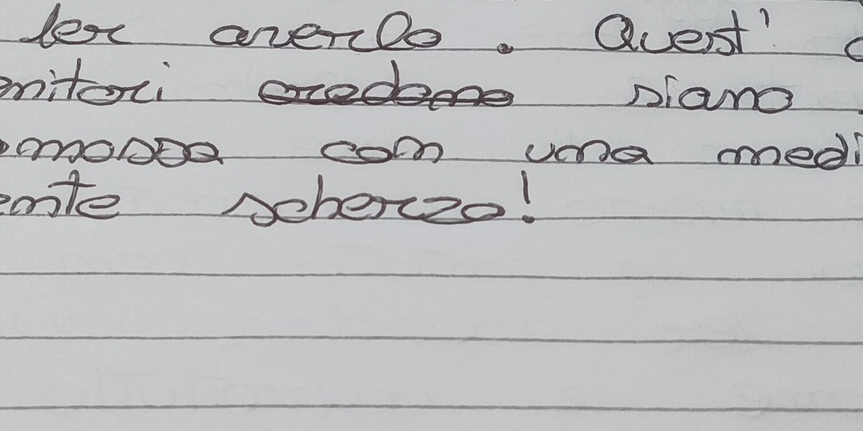 per averlo. Quest'
nitori credono siano
mossa con una medi
ente scherzo!